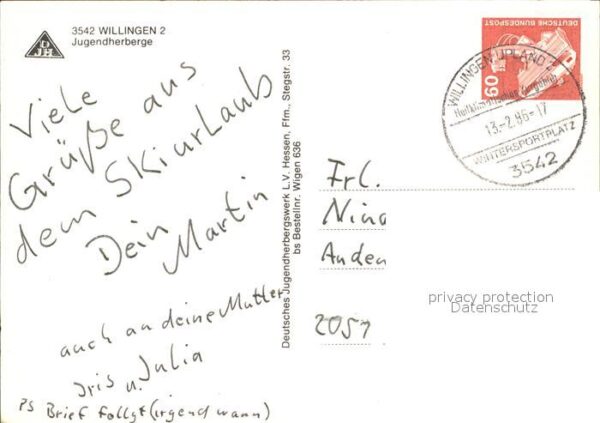 DJH
3542 WILLINGEN 2
Jugendherberge
Viele
Grüße aus
dem Skiurlaub
Dein
Martin
auch an deine Mutter
Iris u. Julia
PS Brief follgt (irgendwann)
Deutsches Jugendherbergswerk L.V. Hessen, Ffm., Stegstr. 33
bs Bestellnr. Wigen 636
DEUTSCHE BUNDESPOST
60
WILLINGEN, UPLAND 2
Heilklimatischer
13.-2.86-17
WINTERSPORTPLATZ
3542
Frl.
Nina
Anden
2051
privacy protection
Datenschutz